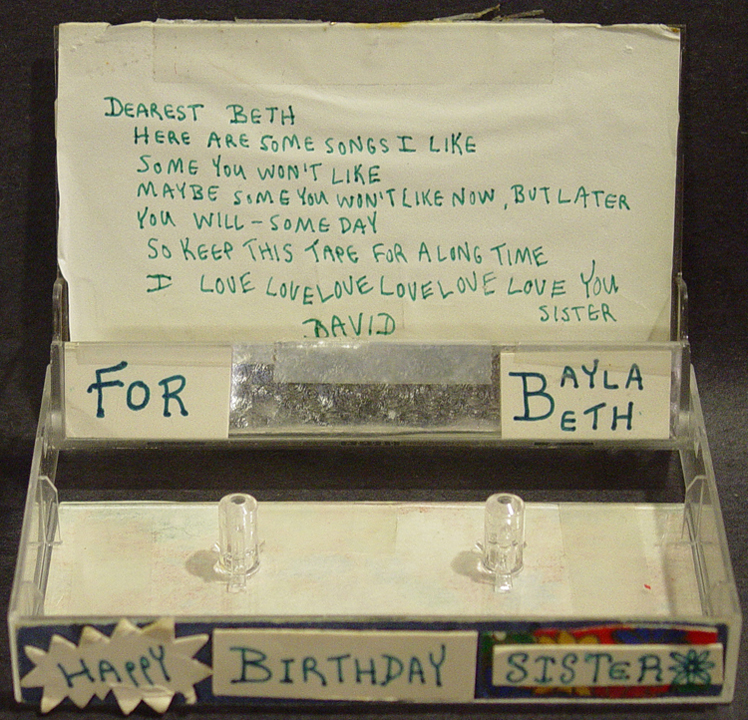 DEAREST BETH
HERE ARE SOME SONGS I LIKE
SOME YOU WON'T LIKE
MAYBE SOME YOU WON'T LIKE NOW, BUT LATER
YOU WILL - SOME DAY
SO KEEP THIS TAPE FOR A LONG TIME
I LOVE LOVE LOVE LOVE LOVE LOVE YOU
SISTER
DAVID
FOR
BAYLA
BETH
HAPPY BIRTHDAY SISTER